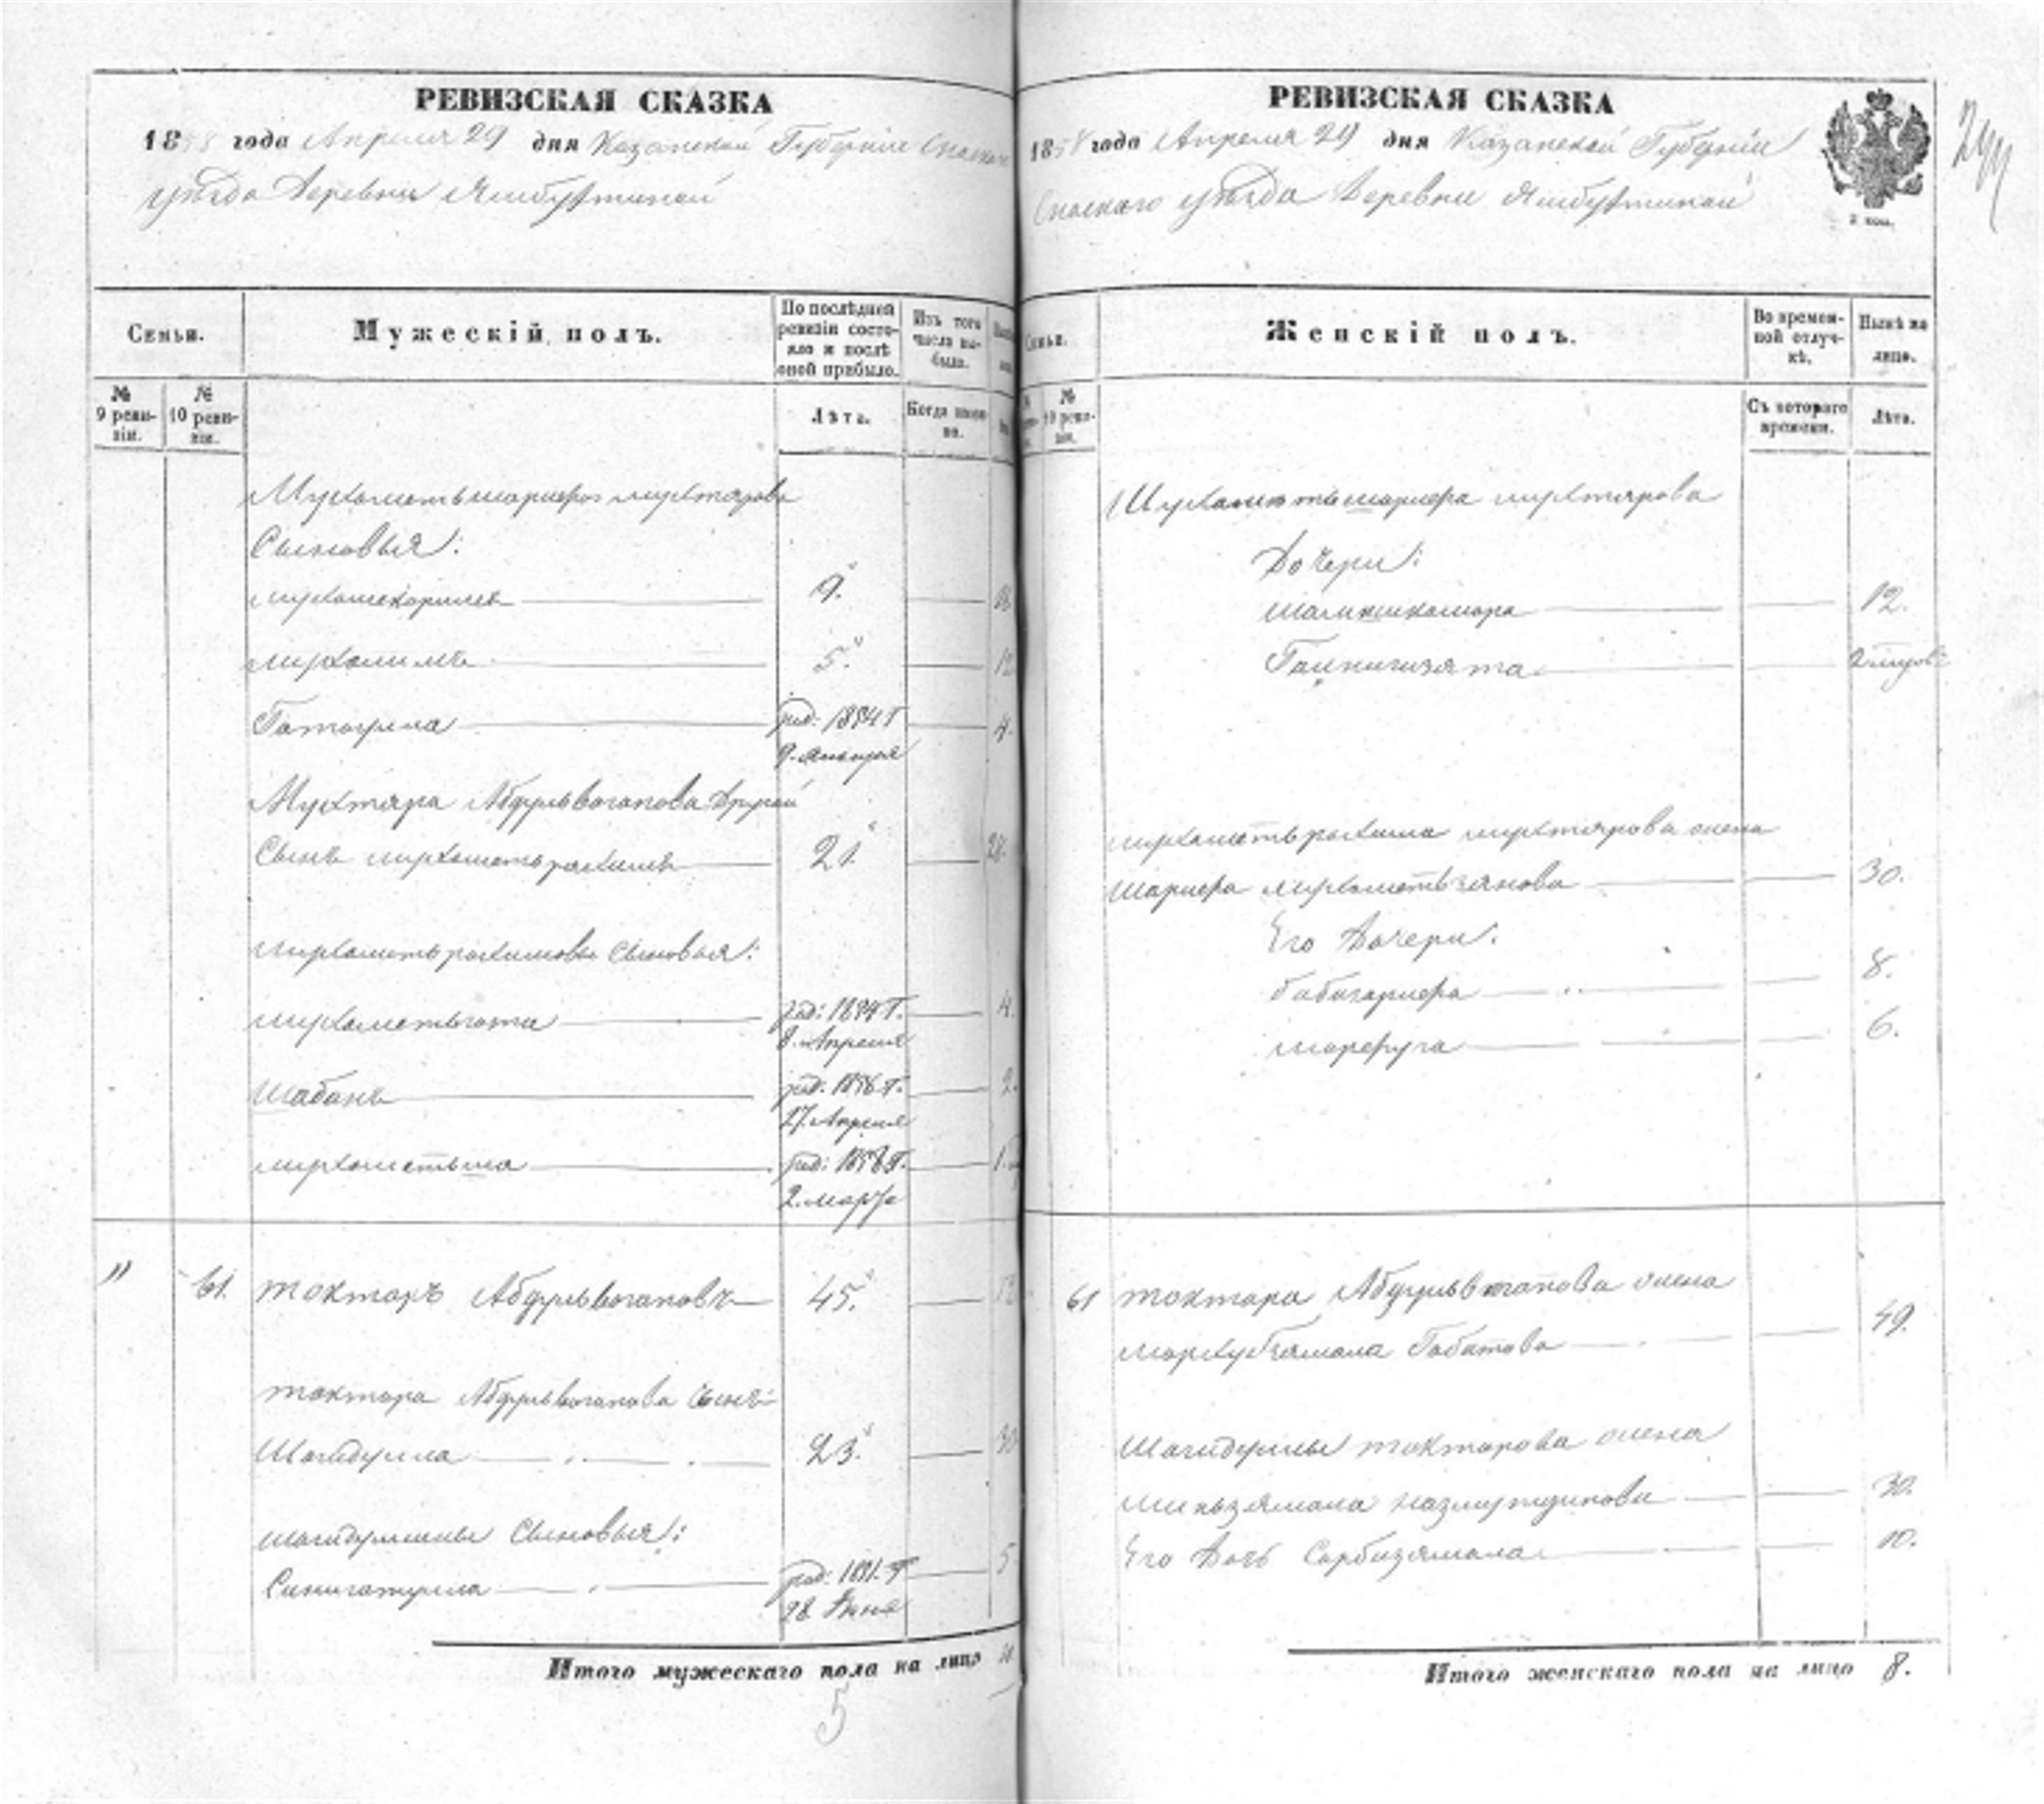 РЕВИЗСКАЯ СКАЗКА
1858 года Апреля 29 дня Казанской Губернии Спаскаго
уѣзда Деревни Ямбухтиной
Семьи.
Мужескій полъ.
По послѣдней ревизіи состояло и послѣ оной прибыло.
Изъ того числа выбыло.
№ 9 ревизіи.
№ 10 ревизіи.
Лѣта.
Когда именно.
Мухаметьшарифа мухтярова
Сыновья:
мухамекаримъ 9.
мухалимъ 5. 12
Гатаулла род: 1854 г 4.
9. Января
Мухтяра Абдульвагапова другой
Сынъ мухаметьрахимъ 21.
мухаметьрахимова сыновья:
мухаметьгата род: 1854 г. 4.
8. Апреля
Шабанъ род. 1856 г. 2.
27. Апреля
мухаметьша род: 1858 г.
2. марта
" 61. Тохтаръ Абдульвагаповъ 45.
Тохтара Абдульвагапова сынъ
Шагидулла 23.
шагидуллины Сыновья:
Синигатулла 5
28. Июня
Итого мужескаго пола на лицо
5
РЕВИЗСКАЯ СКАЗКА
1858 года Апреля 29 дня Казанской Губерніи
Спаскаго уѣзда Деревни Ямбухтиной
2 коп.
Семьи.
Женскій полъ.
Во временной отлучкѣ.
Нынѣ на лицо.
№ 10 ревизіи.
Съ котораго времени.
Лѣта.
Мухаметьшарифа мухтярова
Дочери:
шамшикамара 12.
Мухаметьрахима мухтярова жена
шарифа мухаметьзянова 30.
Его Дочери:
бибигарифа 8.
6.
61 Тохтара Абдульвагапова жена
49.
Шагидуллы тохтарова жена
миньзямала 30.
Его Дочь Сарбизямала 10.
Итого женскаго пола на лицо 8.